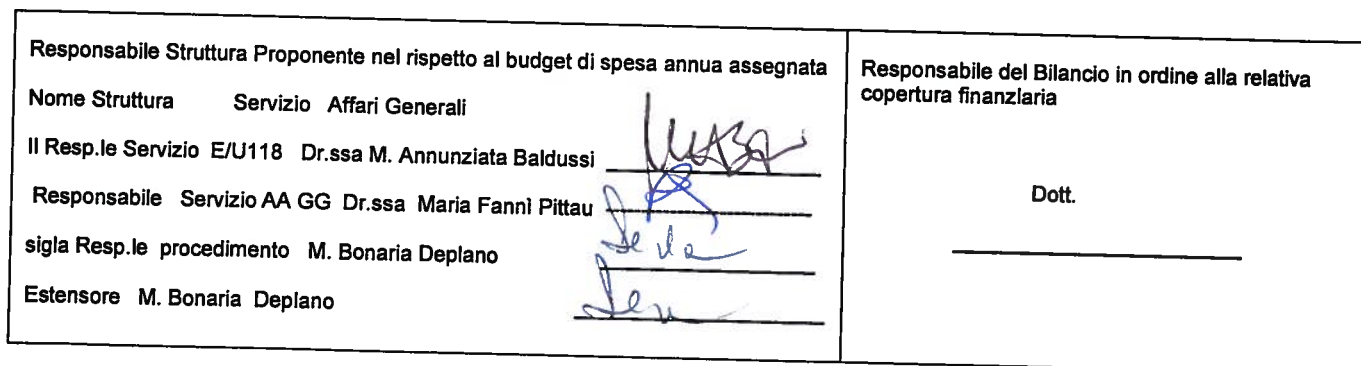 Responsabile Struttura Proponente nel rispetto al budget di spesa annua assegnata
Nome Struttura Servizio Affari Generali
Il Resp.le Servizio E/U118 Dr.ssa M. Annunziata Baldussi
Responsabile Servizio AA GG Dr.ssa Maria Fannì Pittau
sigla Resp.le procedimento M. Bonaria Deplano
Estensore M. Bonaria Deplano
Responsabile del Bilancio in ordine alla relativa
copertura finanziaria
Dott.